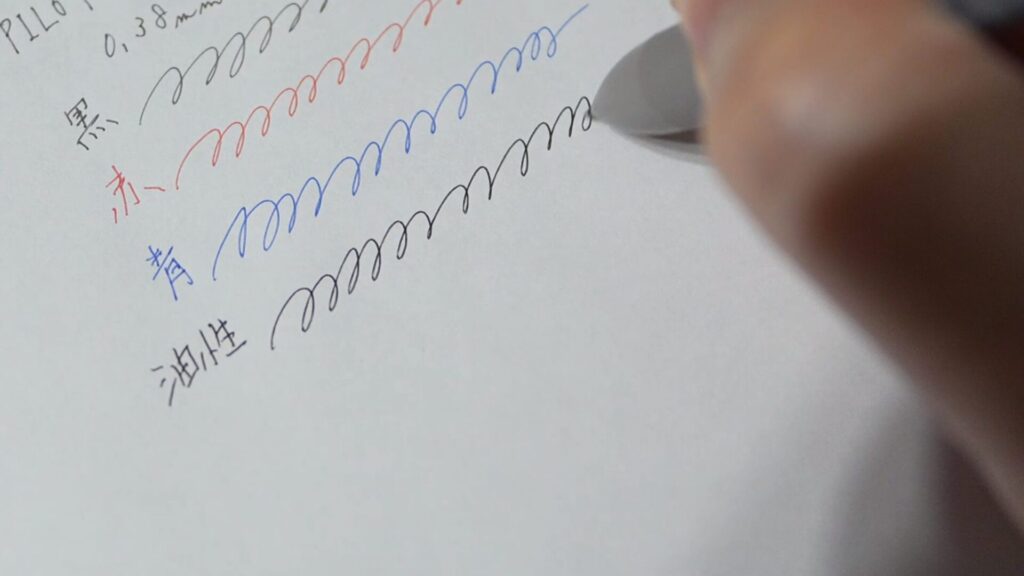 PILOT
0,38mm
黒
赤
青
油性